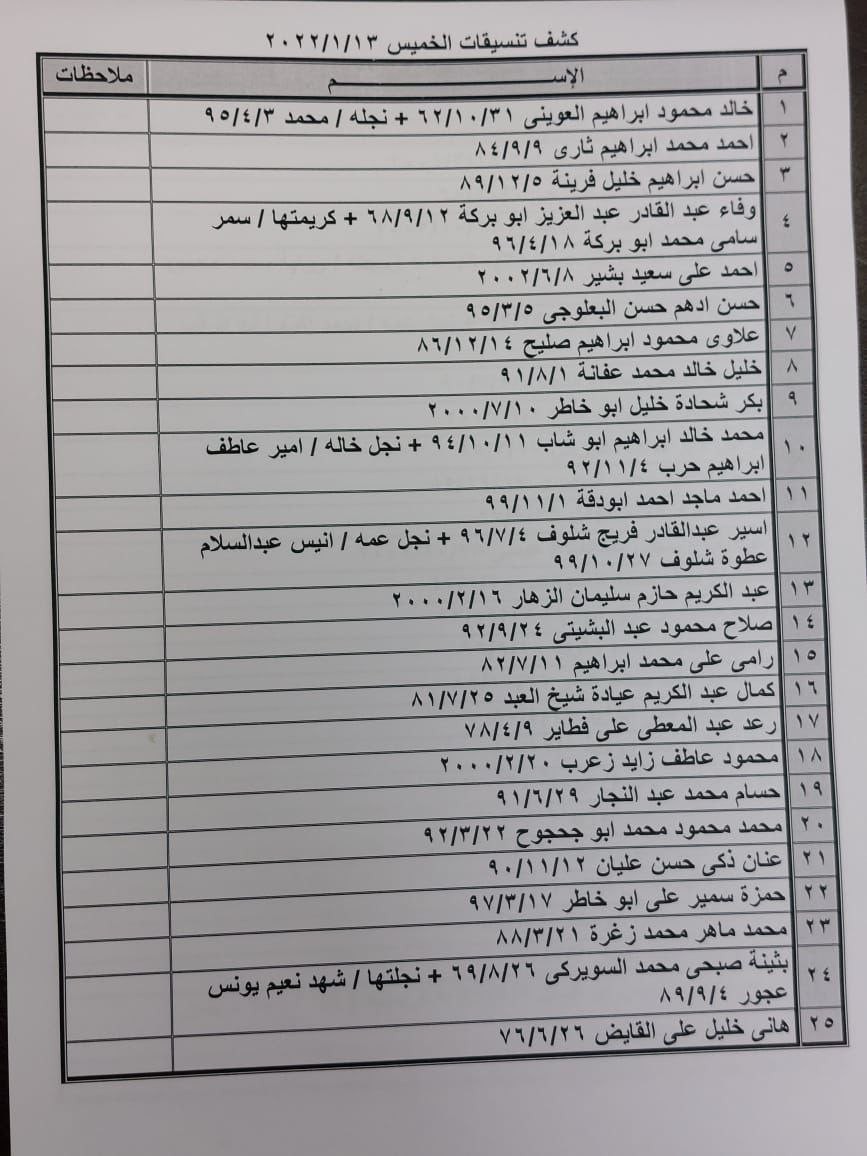 كشف تنسيقات الخميس ٢٠٢٢/١/١٣
م الإســـــــم ملاحظات
١ خالد محمود ابراهيم العوينى ٦٢/١٠/٣١ + نجله / محمد ٩٥/٤/٣
٢ احمد محمد ابراهيم ثارى ٨٤/٩/٩
٣ حسن ابراهيم خليل فرينة ٨٩/١٢/٥
٤ وفاء عبد القادر عبد العزيز ابو بركة ٦٨/٩/١٢ + كريمتها / سمر
سامى محمد ابو بركة ٩٦/٤/١٨
٥ احمد على سعيد بشير ٢٠٠٢/٦/٨
٦ حسن ادهم حسن البعلوجى ٩٥/٣/٥
٧ علاوى محمود ابراهيم صليح ٨٦/١٢/١٤
٨ خليل خالد محمد عفانة ٩١/٨/١
٩ بكر شحادة خليل ابو خاطر ٢٠٠٠/٧/١٠
١٠ محمد خالد ابراهيم ابو شاب ٩٤/١٠/١١ + نجل خاله / امير عاطف
ابراهيم حرب ٩٢/١١/٤
١١ احمد ماجد احمد ابودقة ٩٩/١١/١
١٢ اسير عبدالقادر فريج شلوف ٩٦/٧/٤ + نجل عمه / انيس عبدالسلام
عطوة شلوف ٩٩/١٠/٢٧
١٣ عبد الكريم حازم سليمان الزهار ٢٠٠٠/٢/١٦
١٤ صلاح محمود عبد البشيتى ٩٢/٩/٢٤
١٥ رامى على محمد ابراهيم ٨٢/٧/١١
١٦ كمال عبد الكريم عيادة شيخ العبد ٨١/٧/٢٥
١٧ رعد عبد المعطى على فطاير ٧٨/٤/٩
١٨ محمود عاطف زايد زعرب ٢٠٠٠/٢/٢٠
١٩ حسام محمد عبد النجار ٩١/٦/٢٩
٢٠ محمد محمود محمد ابو جحجوح ٩٢/٣/٢٢
٢١ عنان ذكى حسن عليان ٩٠/١١/١٢
٢٢ حمزة سمير على ابو خاطر ٩٧/٣/١٧
٢٣ محمد ماهر محمد زغرة ٨٨/٣/٢١
٢٤ بثينة صبحى محمد السويركى ٦٩/٨/٢٦ + نجلتها / شهد نعيم يونس
عجور ٨٩/٩/٤
٢٥ هانى خليل على القايض ٧٦/٦/٢٦